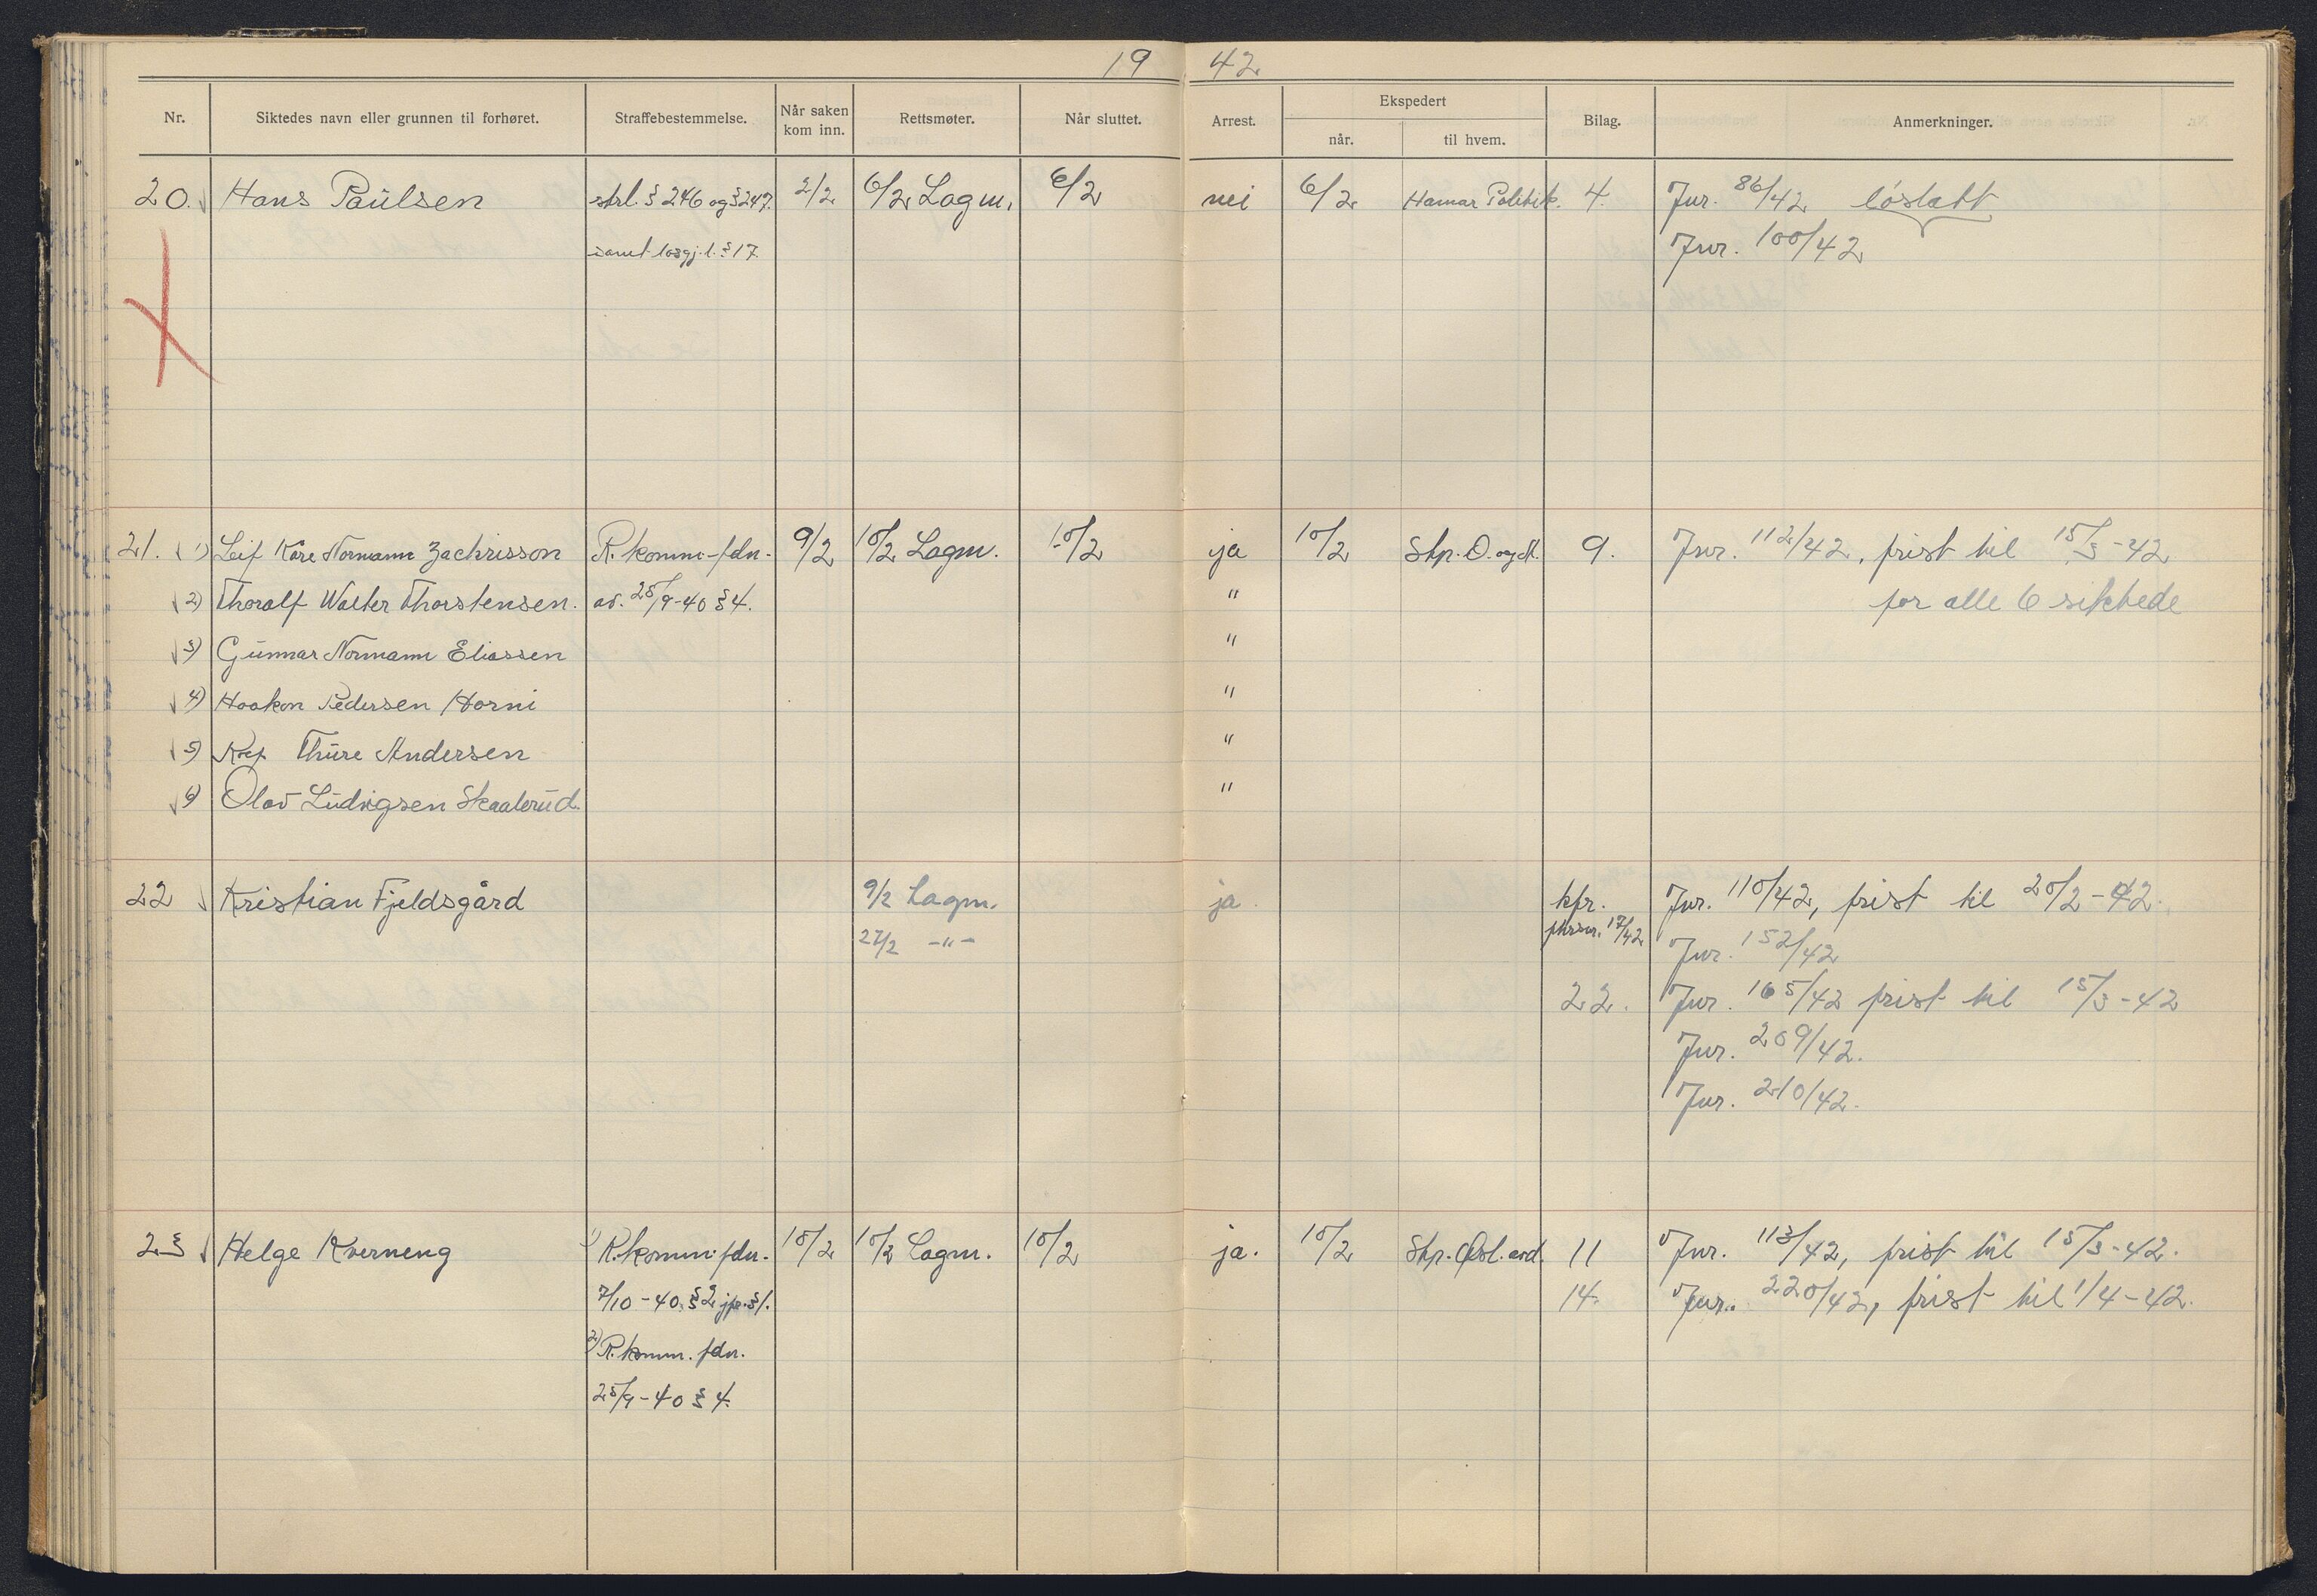 19 42
Nr. Siktedes navn eller grunnen til forhøret. Straffebestemmelse. Når saken kom inn. Rettsmøter. Når sluttet. Arrest. Ekspedert når. til hvem. Bilag. Anmerkninger.
20. Hans Paulsen strl. § 246 og § 247. 2/2 6/2 Lagm. 6/2 nei 6/2 Hamar Politik. 4. Jnr. 86/42 løslatt
samt losgj. l. § 17. Jnr. 100/42
21. 1) Leif Kåre Normann Zachrisson R. komm-fdn. 9/2 10/2 Lagm. 10/2 ja 10/2 Stp. O. og A. 9. Jnr. 112/42, frist til 15/3-42
2) Thoralf Walter Thorstensen. av. 25/9-40 § 4. " for alle 6 siktede
3) Gunnar Normann Eliassen "
4) Haakon Pedersen Horni "
5) Thure Andersen "
6) Olav Ludvigsen Skaalerud. "
22 Kristian Fjeldsgård 9/2 Lagm. ja. kfr. Jnr. 110/42, frist til 20/2-42.
27/2 -"- 17/42 Jnr. 152/42
22. Jnr. 165/42 frist til 15/3-42
Jnr. 209/42.
Jnr. 210/42.
23 Helge Kverneng 1) R. komm. fdn. 10/2 10/2 Lagm. 10/2 ja. 10/2 Stp. Østl. avd. 11 Jnr. 113/42, frist til 15/3-42.
7/10-40. § 2 jfr. § 1. 14. Jnr. 220/42, frist til 1/4-42.
2) R. komm. fdn.
25/9-40 § 4.